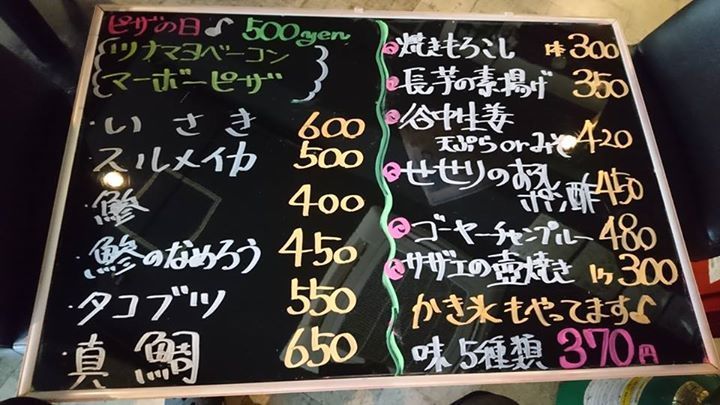 ピザの日♪ 500yen
ツナマヨベーコン
マーボーピザ
・いさき 600
・スルメイカ 500
・鯵 400
・鯵のなめろう 450
・タコブツ 550
・真鯛 650
焼きもろこし 1本 300
長芋の素揚げ 350
谷中生姜
天ぷらorみそ 420
せせりのおろし
ポン酢 450
ゴーヤーチャンプルー 480
サザエの壺焼き 1ヶ 300
かき氷もやってます♪
味5種類 370円